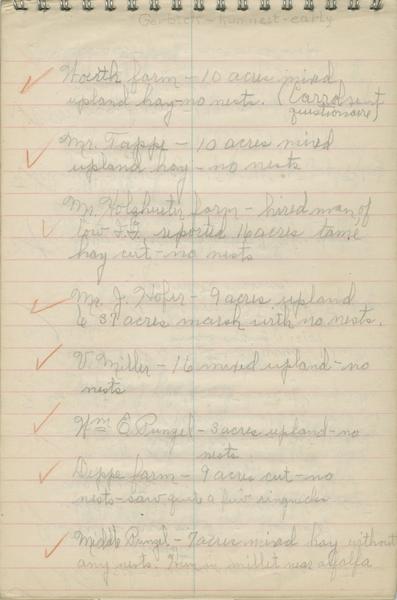 Hoerth farm - 10 acres mixed
upland hay - no nests. (Carrol sent
questionaire)
Mr. Tappe - 10 acres mixed
upland hay - no nests
farm - hired man of
reported 16 acres tame
hay cut - no nests
Mr. J. Hofer - 9 acres upland
& 39 acres marsh with no nests.
V. Miller - 16 mixed upland - no
nests
Wm E. Pungel - 3 acres upland - no
nests
Deppe farm - 9 acres cut - no
nests - saw quite a few ringnecks
Middle Pungel - 7 acres mixed hay without
any nests. Hen in millet near alfalfa